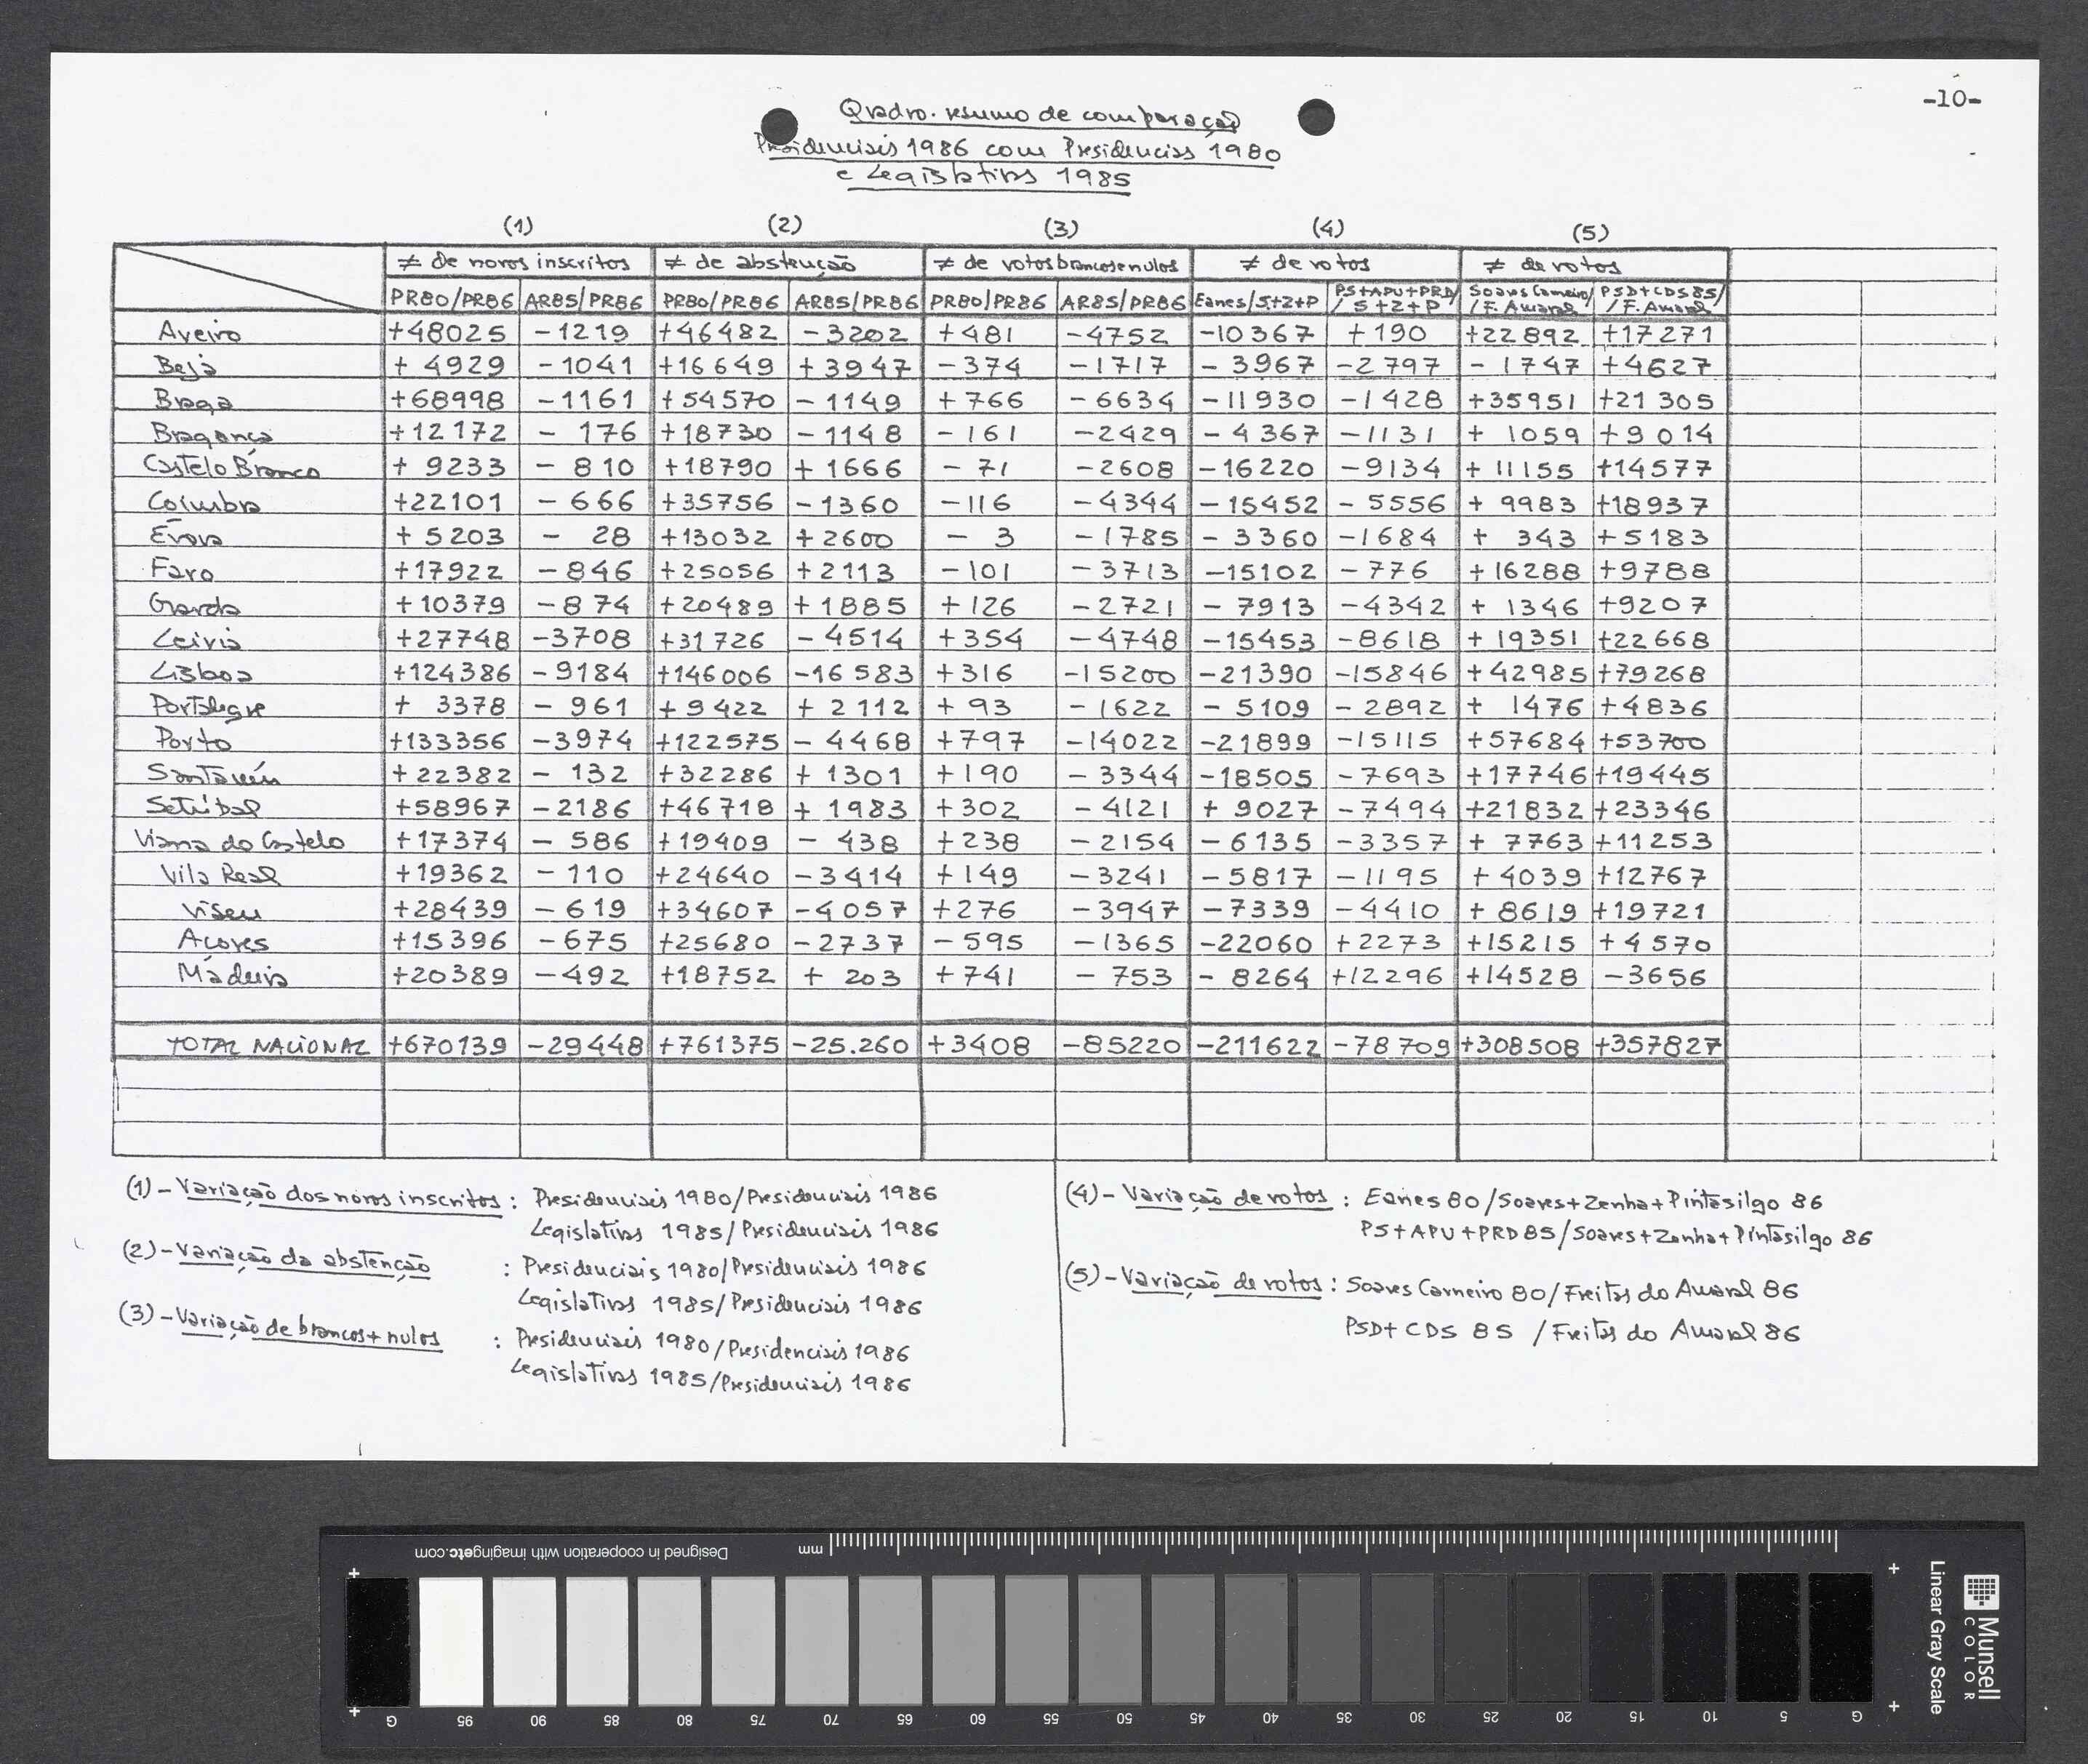 -10-
Quadro-resumo de comparação
Presidenciais 1986 com Presidenciais 1980
e Legislativas 1985
(1) (2) (3) (4) (5)
≠ de novos inscritos ≠ de abstenção ≠ de votos brancos e nulos ≠ de votos ≠ de votos
PR80/PR86 AR85/PR86 PR80/PR86 AR85/PR86 PR80/PR86 AR85/PR86 Eanes/S+Z+P PS+APU+PRD/S+Z+P Soares Carneiro/F. Amaral PSD+CDS85/F. Amaral
Aveiro +48025 -1219 +46482 -3202 +481 -4752 -10367 +190 +22892 +17271
Beja +4929 -1041 +16649 +3947 -374 -1717 -3967 -2797 -1747 +4627
Braga +68998 -1161 +54570 -1149 +766 -6634 -11930 -1428 +35951 +21305
Bragança +12172 -176 +18730 -1148 -161 -2429 -4367 -1131 +1059 +9014
Castelo Branco +9233 -810 +18790 +1666 -71 -2608 -16220 -9134 +11155 +14577
Coimbra +22101 -666 +35756 -1360 -116 -4344 -15452 -5556 +9983 +18937
Évora +5203 -28 +13032 +2600 -3 -1785 -3360 -1684 +343 +5183
Faro +17922 -846 +25056 +2113 -101 -3713 -15102 -776 +16288 +9788
Guarda +10379 -874 +20489 +1885 +126 -2721 -7913 -4342 +1346 +9207
Leiria +27748 -3708 +31726 -4514 +354 -4748 -15453 -8618 +19351 +22668
Lisboa +124386 -9184 +146006 -16583 +316 -15200 -21390 -15846 +42985 +79268
Portalegre +3378 -961 +9422 +2112 +93 -1622 -5109 -2892 +1476 +4836
Porto +133356 -3974 +122575 -4468 +797 -14022 -21899 -15115 +57684 +53700
Santarém +22382 -132 +32286 +1301 +190 -3344 -18505 -7693 +17746 +19445
Setúbal +58967 -2186 +46718 +1983 +302 -4121 +9027 -7494 +21832 +23346
Viana do Castelo +17374 -586 +19409 -438 +238 -2154 -6135 -3357 +7763 +11253
Vila Real +19362 -110 +24640 -3414 +149 -3241 -5817 -1195 +4039 +12767
Viseu +28439 -619 +34607 -4057 +276 -3947 -7339 -4410 +8619 +19721
Açores +15396 -675 +25680 -2737 -595 -1365 -22060 +2273 +15215 +4570
Madeira +20389 -492 +18752 +203 +741 -753 -8264 +12296 +14528 -3656
TOTAL NACIONAL +670139 -29448 +761375 -25.260 +3408 -85220 -211622 -78709 +308508 +357827
(1) - Variação dos novos inscritos : Presidenciais 1980/Presidenciais 1986
Legislativas 1985/Presidenciais 1986
(2) - Variação da abstenção : Presidenciais 1980/Presidenciais 1986
Legislativas 1985/Presidenciais 1986
(3) - Variação de brancos + nulos : Presidenciais 1980/Presidenciais 1986
Legislativas 1985/Presidenciais 1986
(4) - Variação de votos : Eanes 80/Soares+Zenha+Pintasilgo 86
PS+APU+PRD85/Soares+Zenha+Pintasilgo 86
(5) - Variação de votos : Soares Carneiro 80/Freitas do Amaral 86
PSD+CDS 85 /Freitas do Amaral 86
Designed in cooperation with imagingetc.com
mm
G 95 90 85 80 75 70 65 60 55 50 45 40 35 30 25 20 15 10 5 G
Linear Gray Scale
Munsell
COLOR